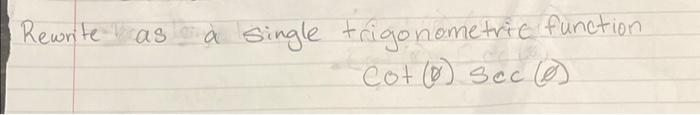 Rewrite as a single trigonometric function
Cot (θ) Sec (θ)